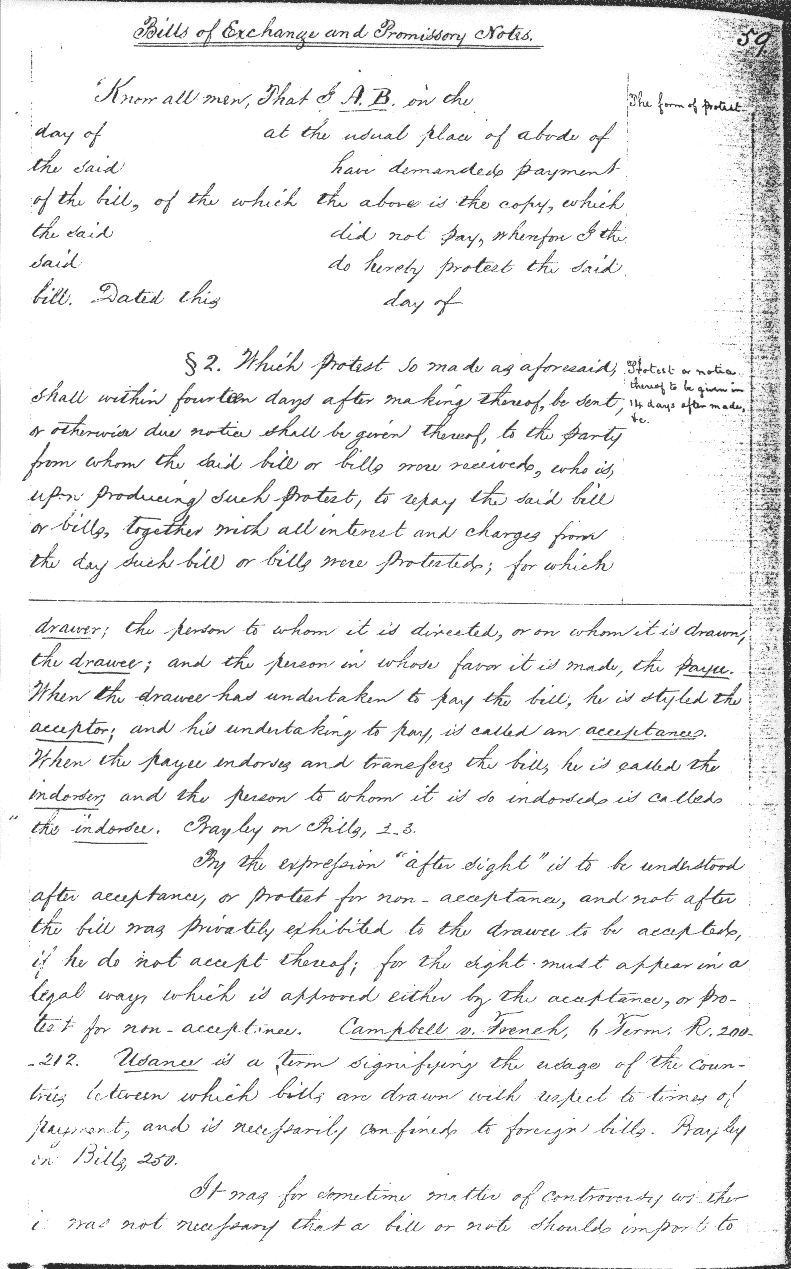 Bills of Exchange and Promissory Notes.
59.
"Know all men, That I A.B. on the
The form of protest.
day of at the usual place of abode of
the said have demanded payment
of the bill, of the which the above is the copy, which
the said did not pay, wherefore I the
said do hereby protest the said
bill. Dated this day of
§ 2. Which protest so made as aforesaid,
shall within fourteen days after making thereof, be sent,
or otherwise due notice shall be given thereof, to the party
from whom the said bill or bills were received, who is,
upon producing such protest, to repay the said bill
or bills, together with all interest and charges from
the day such bill or bills were protested; for which
Protest or notice
thereof to be given in
14 days after made,
&c.
drawer; the person to whom it is directed, or on whom it is drawn,
the drawee; and the person in whose favor it is made, the payee.
When the drawee has undertaken to pay the bill, he is styled the
acceptor; and his undertaking to pay, is called an acceptance.
When the payee endorses and transfers the bill, he is called the
indorser, and the person to whom it is so indorsed is called
the indorsee. Bayley on Bills, 2-3.
By the expression "after sight" is to be understood
after acceptance, or protest for non-acceptance, and not after
the bill was privately exhibited to the drawee to be accepted,
if he do not accept thereof; for the sight must appear in a
legal way, which is approved either by the acceptance, or pro-
test for non-acceptance. Campbell v. French, 6 Term. R. 200-
-212. Usance is a term signifying the usage of the coun-
tries between which bills are drawn with respect to times of
payment, and is necessarily confined to foreign bills. Bayley
on Bills, 250.
It was for sometime matter of controversy whether
it was not necessary that a bill or note should import to